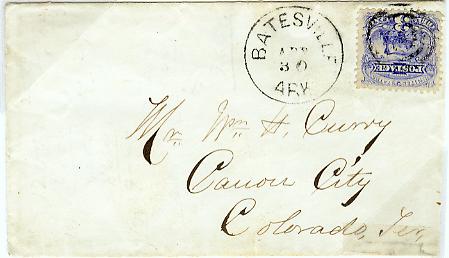 BATESVILLE
APR
30
ARK
POSTAGE
Mr. Wm. H. Curry
Canon City
Colorado, Ter,